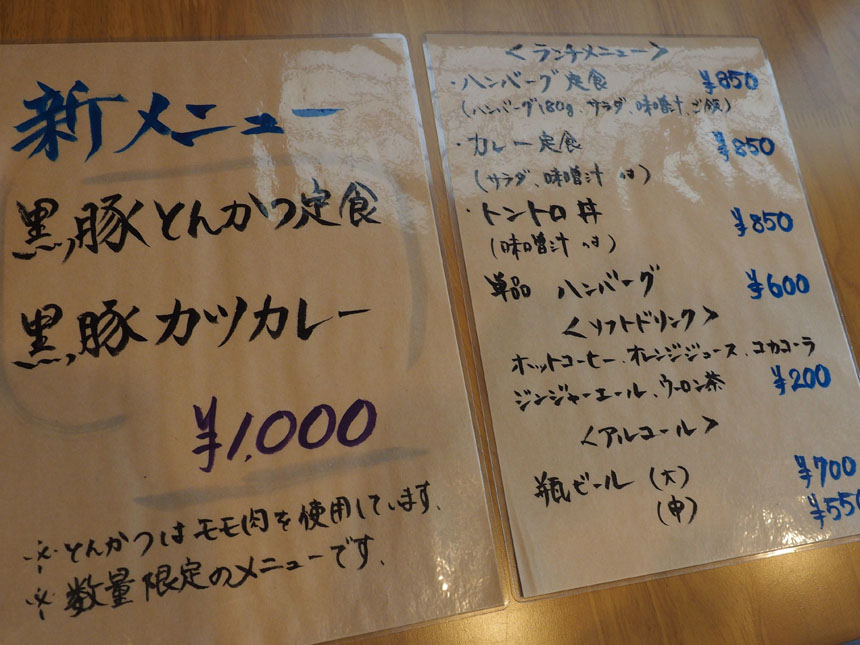 新メニュー
黒豚とんかつ定食
黒豚カツカレー
¥1,000
※とんかつはモモ肉を使用しています.
※数量限定のメニューです.
<ランチメニュー>
・ハンバーグ定食 ¥850
(ハンバーグ180g、サラダ、味噌汁、ご飯)
・カレー定食 ¥850
(サラダ、味噌汁 付)
・トントロ丼 ¥850
(味噌汁 付)
単品 ハンバーグ ¥600
<ソフトドリンク>
ホットコーヒー、オレンジジュース、コカコーラ
ジンジャーエール、ウーロン茶 ¥200
<アルコール>
瓶ビール (大) ¥700
(中) ¥550